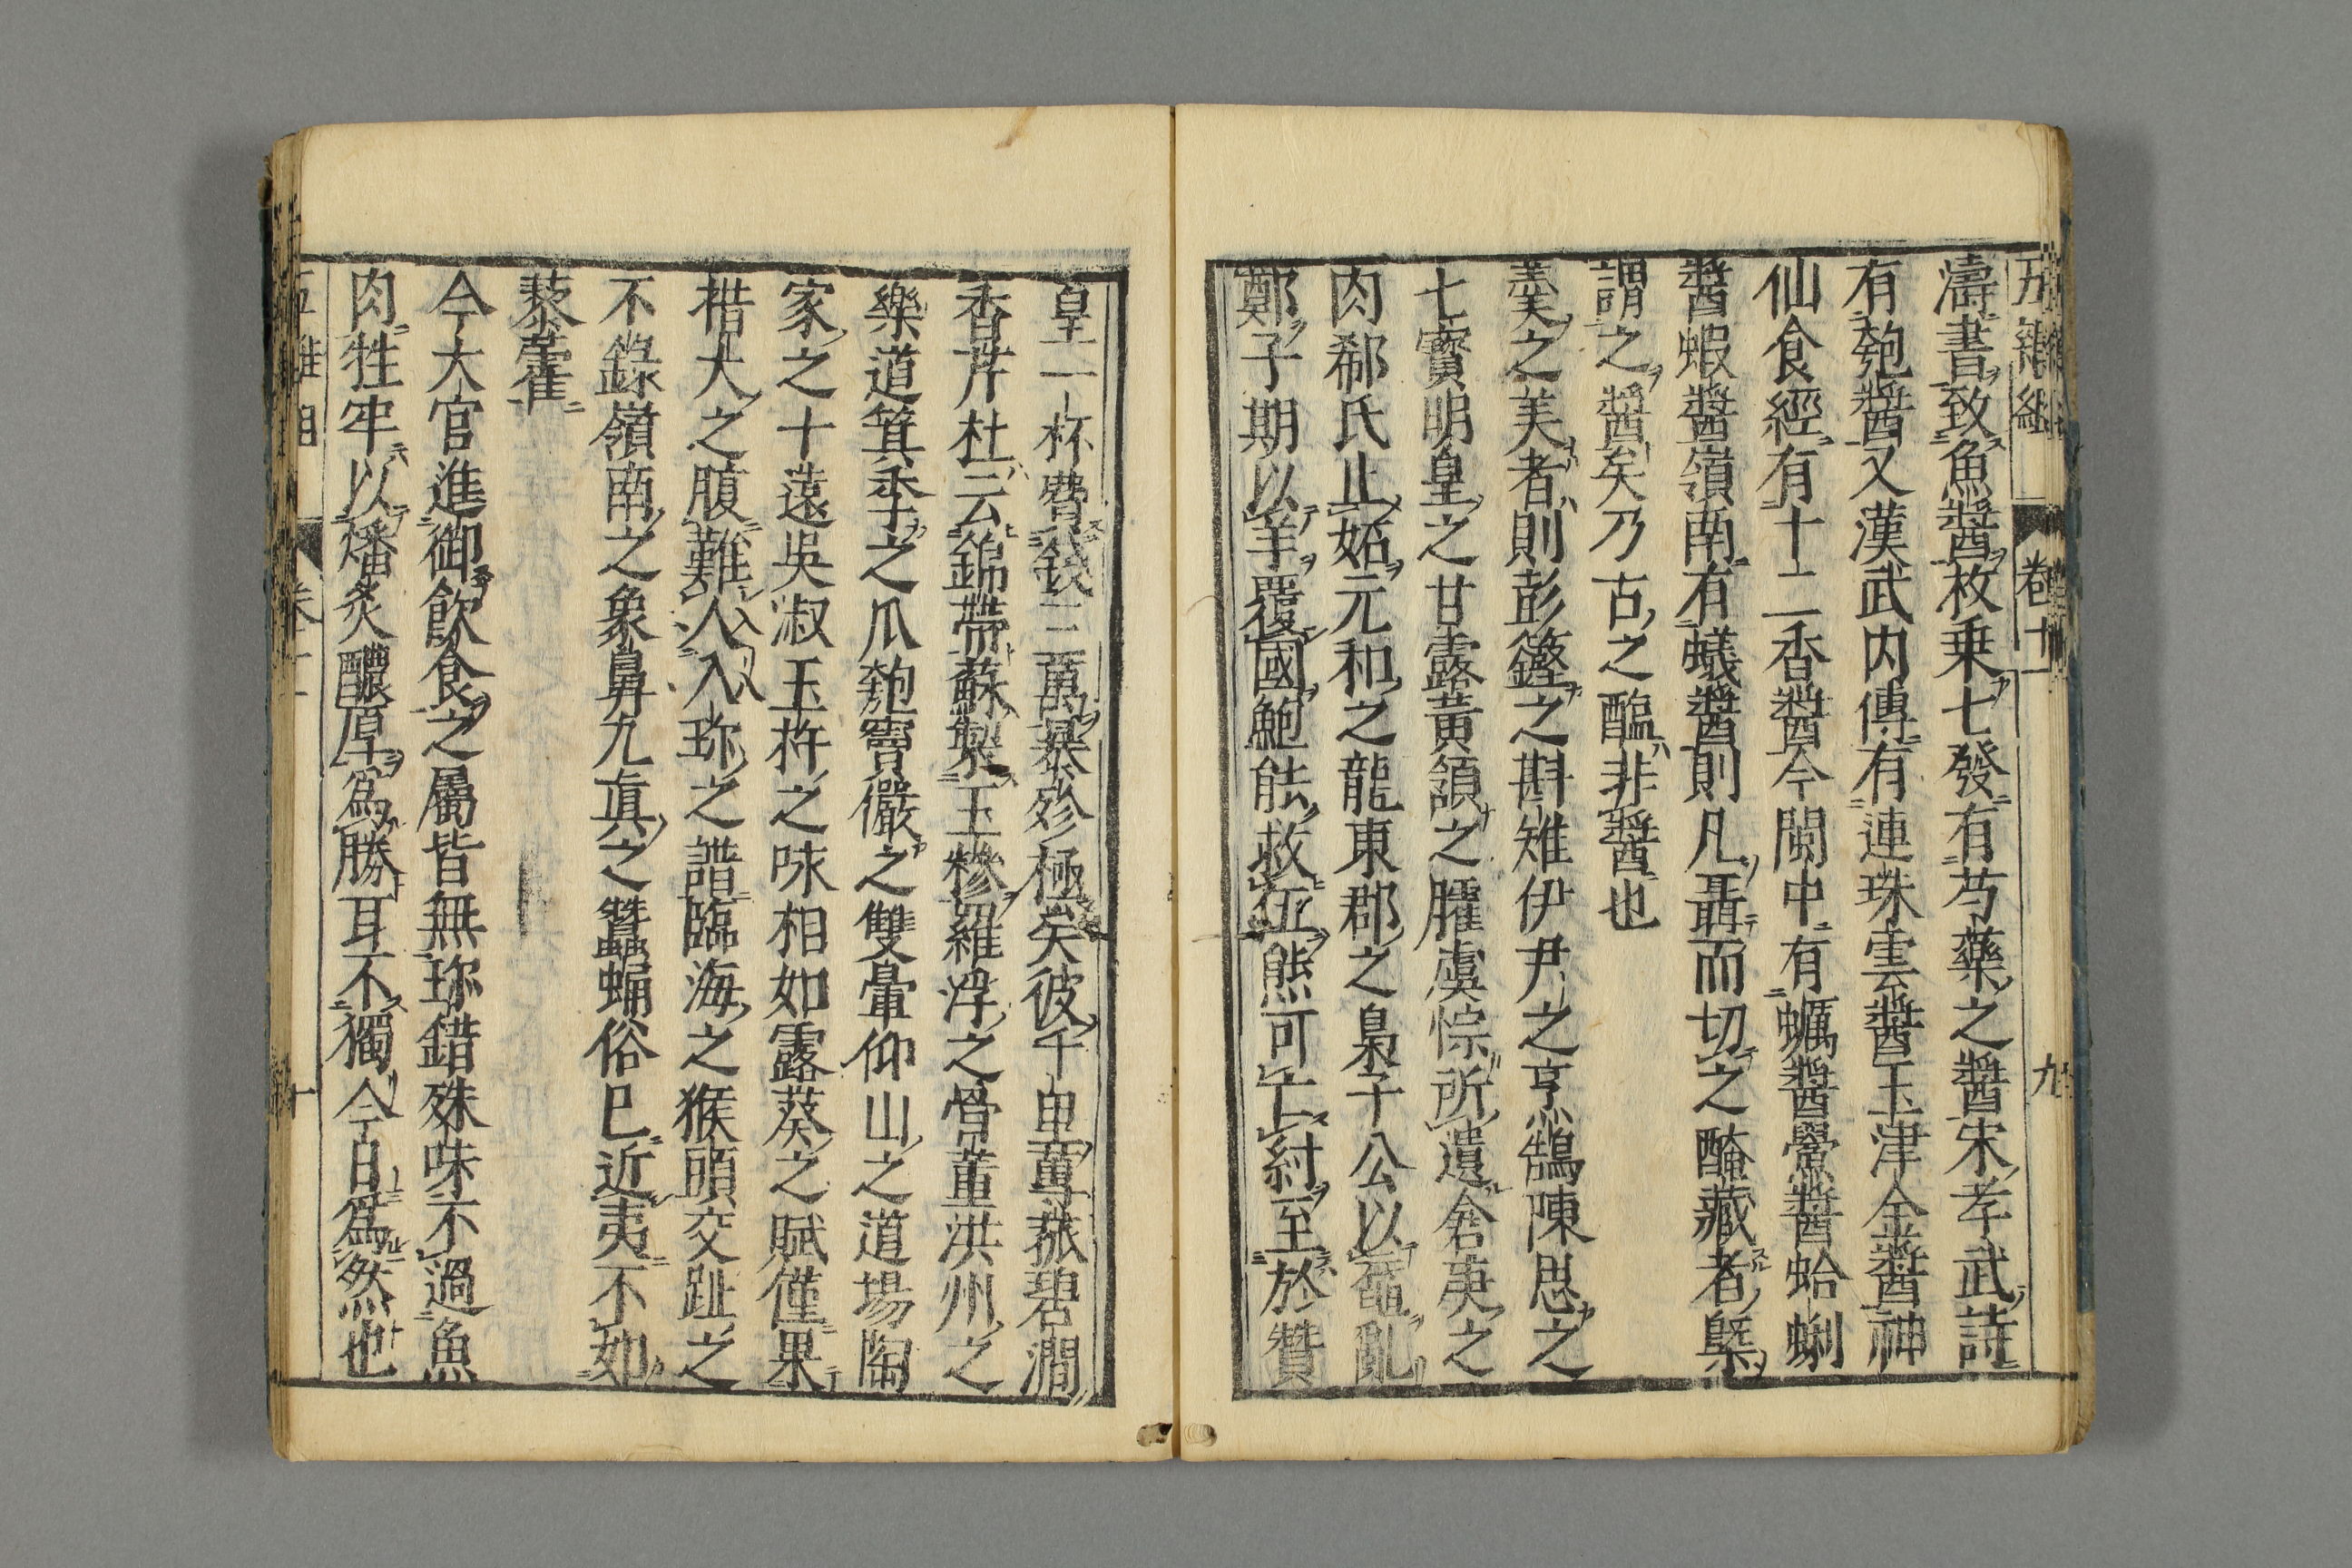 五雜組 卷十一 九
濤書致魚醬枚乗七發有芍藥之醬宋孝武詩
有匏醬又漢武内傳有連珠雲醬玉津金醬神
仙食經有十二香醬今閩中有蠣醬鱟醬蛤蜊
醬蝦醬嶺南有蟻醬則凡聶而切之醃藏者槩
謂之醬矣乃古之醢非醬也
羹之美者則彭籛之斟雉伊尹之烹鵠陳思之
七寳明皇之甘露黄頷之臛虞悰所遺舍𦤀之
肉郗氏止妬元和之龍東郡之梟子公以黿亂
鄭子期以羊覆國鮑能救伍熊可亡紂至於贊
皇一杯費錢三萬暴殄極矣彼千里蓴菰碧澗
香芹杜云錦帶蘇製玉糝羅浮之骨董洪州之
樂道箕季之瓜匏竇儼之雙暈仰山之道場陶
家之十遠吳淑玉杵之味相如露葵之賦僅果
措大之腹難入珎之譜臨海之猴頭交趾之
不錄嶺南之象鼻九真之蠶蛹俗已近夷不如
藜藿
今大官進御飲食之屬皆無珎錯殊味不過魚
肉牲牢以燔炙醲厚為勝耳不獨今日為然也
卷十一 十